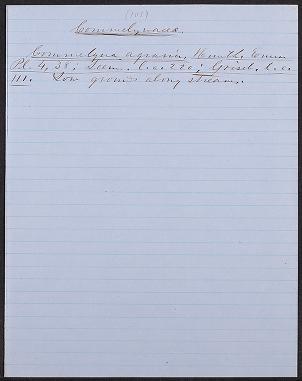 (108)
Commelynaceæ.
Commelyna agraria, Kunth, Enum
Pl. 4, 38; Seem. l. c. 220; Griseb. l. c.
111. Low grounds along streams.